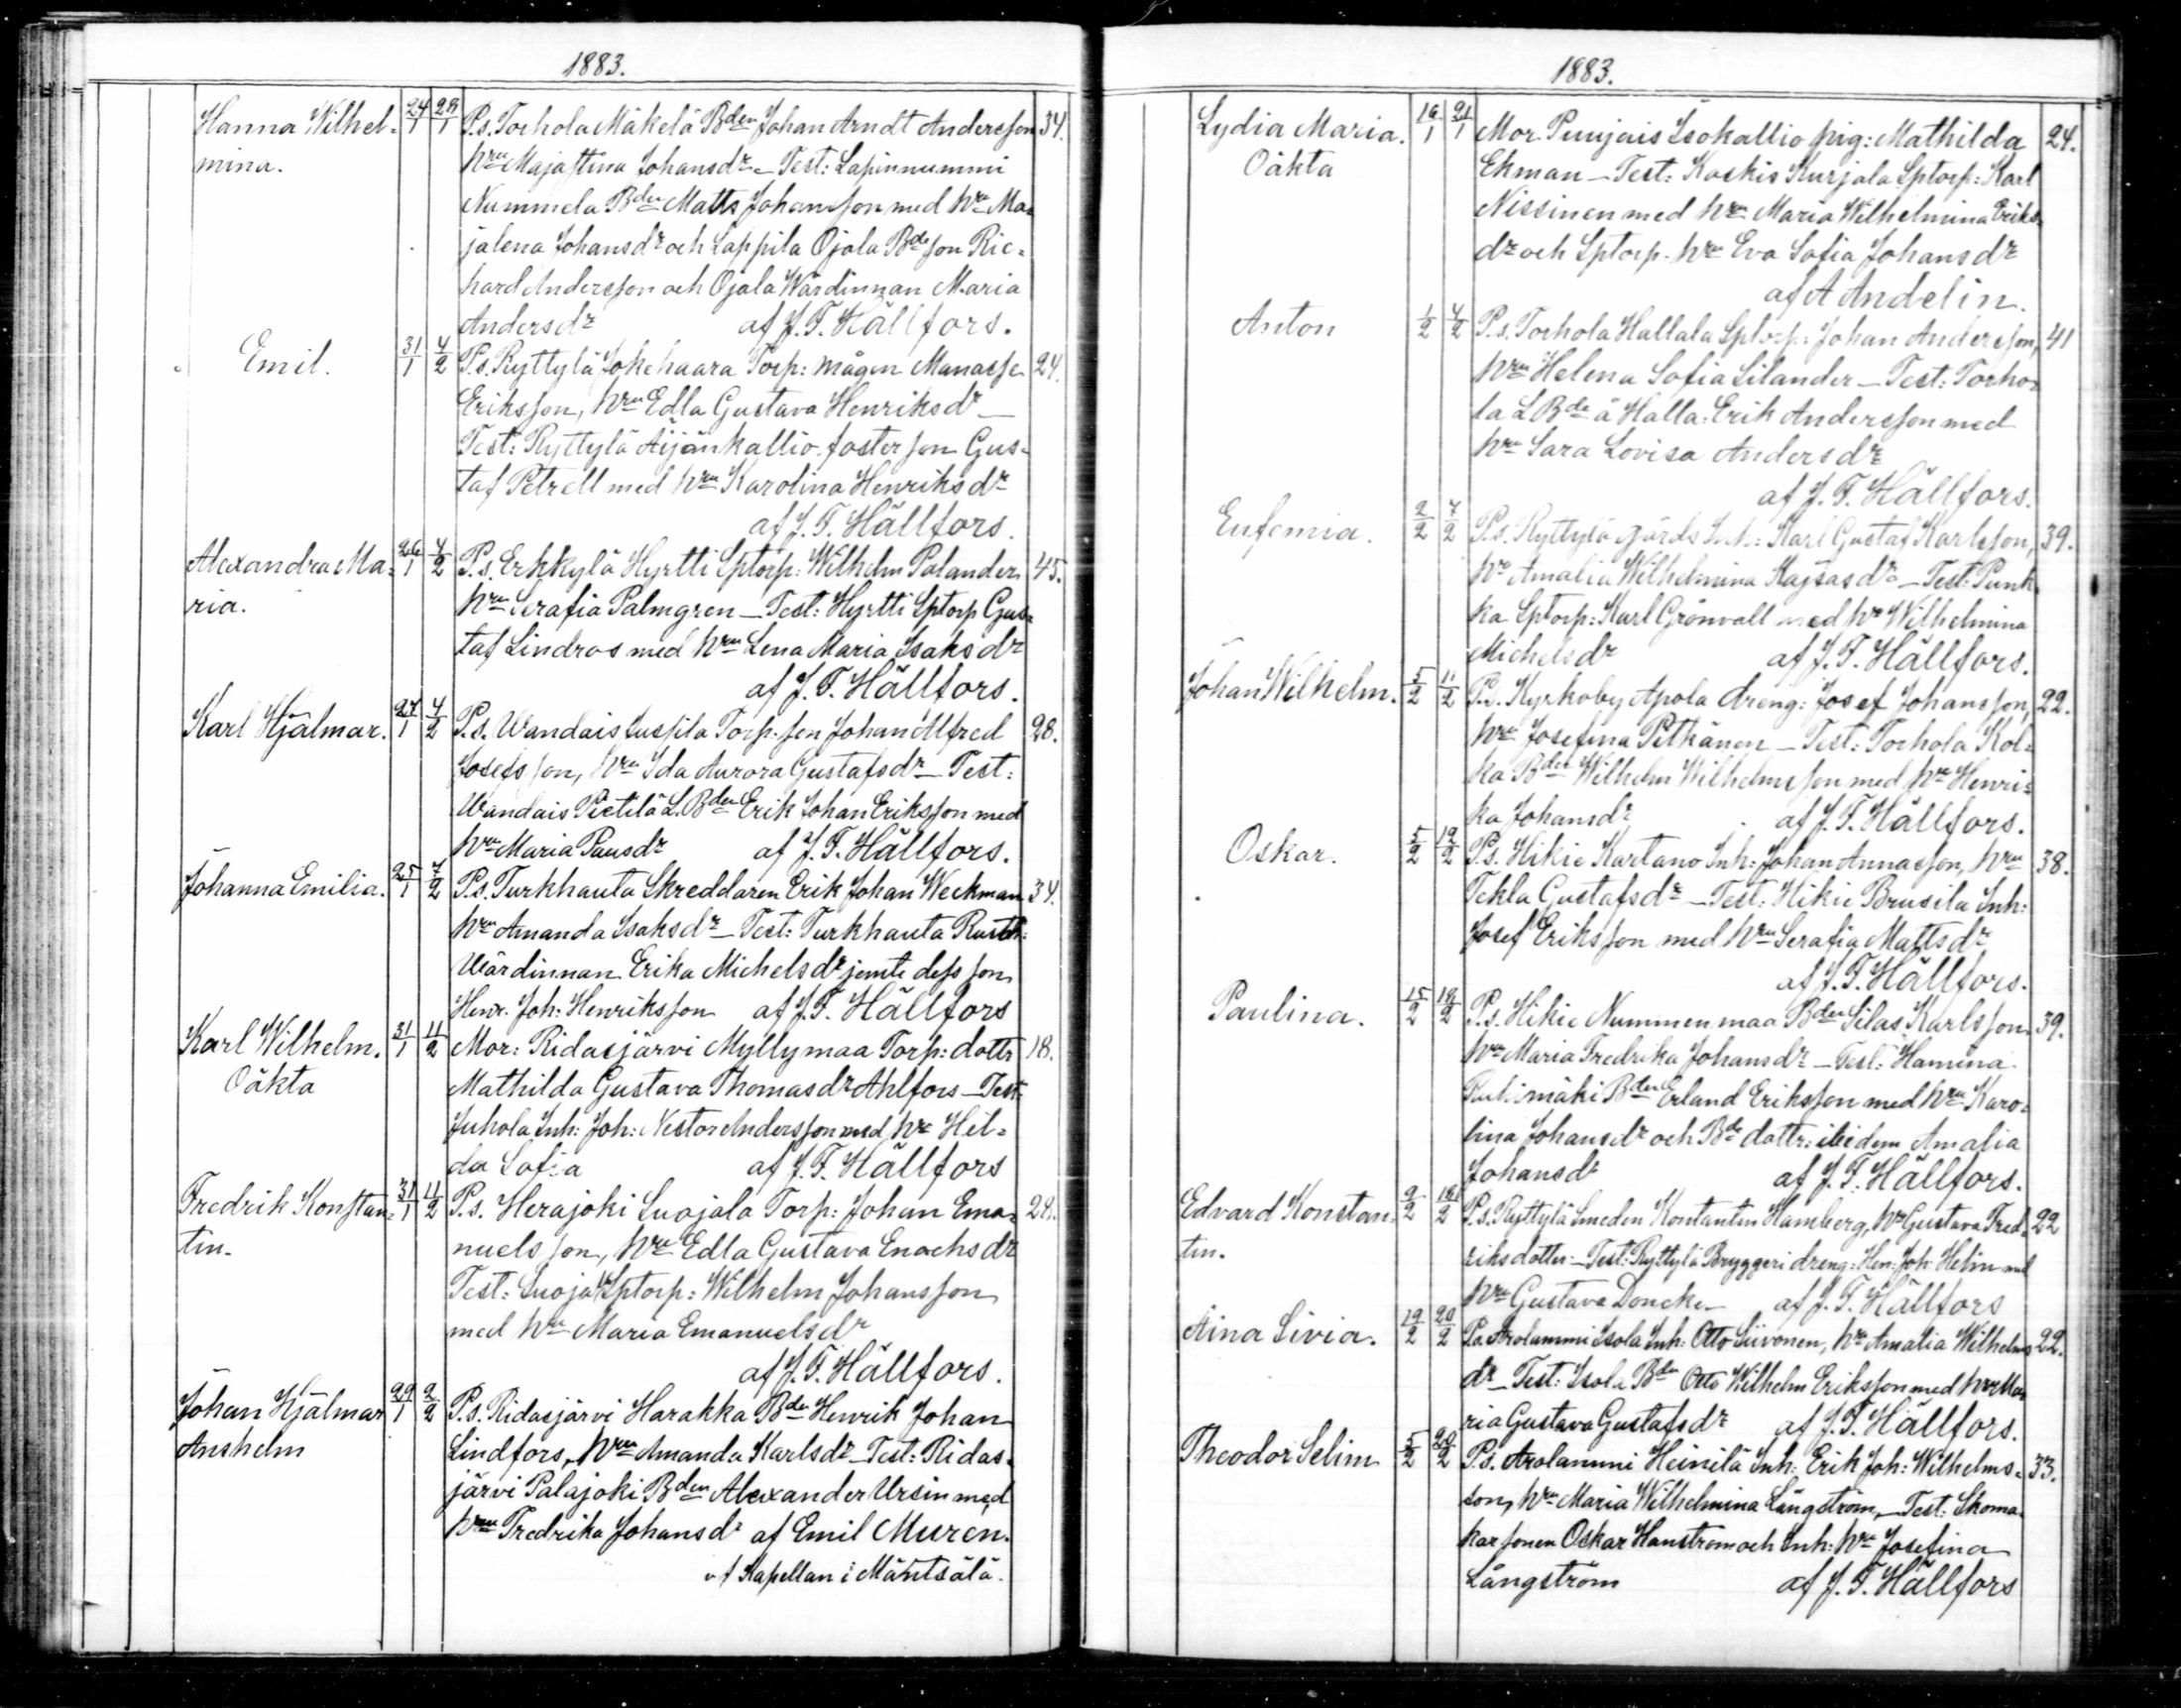 1883.
Hanna Wilhel= 24/1 28/1 P.s. Torhola Mäkelä Bden Johan Arndt Andersson 34.
mina. hru Majastina Johansdr – Test: Lapinnummi
Nummela Bden Matts Johansson med hru Ma=
jalena Johansdr och Lappila Ojala Bdeson Ric=
hard Andersson och Ojala Wärdinnan Maria
Andersdr af J. F. Hällfors.
Emil. 31/1 4/2 P.s. Ryttylä Jokehaara Torp: mågen Manasse 24.
Eriksson, hru Edla Gustava Henriksdr –
Test: Ryttylä Äijänkallio fosterson Gus=
taf Petrell med hru Karolina Henriksdr
af J. F. Hällfors.
Alexandra Ma= 26/1 4/2 P.s. Erkkylä Hyrtti Sptorp: Wilhelm Palander 45.
ria. hru Serafia Palmgren – Test: Hyrtti Sptorp Gus=
taf Lindros med hru Lena Maria Isaksdr
af J. F. Hällfors.
Karl Hjälmar. 27/1 4/2 P.s. Wandais Torp. son Johan Alfred 28.
Josefsson, hru Ida Aurora Gustafsdr – Test:
Wandais Pietilä L.Bden Erik Johan Eriksson med
hru Maria Pausdr af J. F. Hällfors.
Johanna Emilia. 25/1 7/2 P.s. Turkhauta Skreddaren Erik Johan Weckman 34.
hru Amanda Isaksdr – Test: Turkhauta Rusth:
Wärdinnan Erika Michelsdr jemte dess son
Henr. Joh: Henriksson af J. F. Hällfors
Karl Wilhelm. 31/1 11/2 Mor: Ridasjärvi Myllymaa Torp: dottr 18.
Oäkta Mathilda Gustava Thomasdr Ahlfors – Test:
Juhola Inh: Joh: Nestor Andersson med hru Hil=
da Sofia af J. F. Hällfors
Fredrik Konstan= 31/1 11/2 P.s. Herajoki Suojala Torp: Johan Ema= 28.
tin. nuelsson, hru Edla Gustava Enochsdr
Test: Suoja Sptorp: Wilhelm Johansson
med hru Maria Emanuelsdr
af J. F. Hällfors.
Johan Hjälmar 29/1 2/2 P.s. Ridasjärvi Harakka Bden Henrik Johan
Anshelm Lindfors, hru Amanda Karlsdr – Test: Ridas=
järvi Palajoki Bden Alexander Ursin med
hru Fredrika Johansdr af Emil Murén.
vf Kapellan i Mäntsälä.
1883.
Lydia Maria. 16/1 21/1 Mor. Punjais Isokallio pig: Mathilda 24.
Oäkta Ekman – Test: Koskis Kurjala Sptorp: Karl
Nissinen med hru Maria Wilhelmina Eriks=
dr och Sptorp. hru Eva Sofia Johansdr
af A Andelin.
Anton 1/2 4/2 P.s. Torhola Hallala Sptorp: Johan Andersson, 41
hru Helena Sofia Silander – Test: Torho=
la L Bde å Halla: Erik Andersson med
hru Sara Lovisa Andersdr
af J. F. Hällfors.
Eufemia. 2/2 7/2 P.s. Ryttylä gårds Inh: Karl Gustaf Karlsson, 39.
hr Amalia Wilhelmina Kajsasdr – Test: Punk=
ka Sptorp: Karl Grönvall med hr Wilhelmina
Michelsdr af J. F. Hällfors.
Johan Wilhelm. 5/2 11/2 P.s. Kyrkoby Apola dreng: Josef Johansson, 22.
hru Josefina Pitkänen – Test: Torhola Kol=
ka Bden Wilhelm Wilhelmsson med hru Henri=
ka Johansdr af J. F. Hällfors.
Oskar. 5/2 12/2 P.s. Hikie Kartano Inh: Johan Annasson, hru 38.
Tekla Gustafsdr – Test: Hikie Brusila Inh:
Josef Eriksson med hru Serafia Mattsdr
af J. F. Hällfors.
Paulina. 15/2 18/2 P.s. Hikie Nummenmaa Bden Silas Karlsson 39.
hru Maria Fredrika Johansdr – Test: Hamina
Bden Erland Eriksson med hru Karo=
lina Johansdr och Bde dottr: ibidem Amalia
Johansdr af J. F. Hällfors.
Edvard Konstan= 9/2 18/2 P.s. Ryttylä Smeden Kontantin Hamberg, hr Gustava Fred= 22
tin. riksdotter – Test: Ryttylä Bryggeri dreng: Hen: Joh: Helin med
hru Gustava Doncker af J. F. Hällfors
Aina Sivia. 19/2 20/2 P.s. Arolammi Isola Inh: Otto Siivonen, hru Amalia Wilhelms 22.
dr – Test: Isola Bden Otto Wilhelm Eriksson med hru Ma=
ria Gustava Gustafsdr af J. F. Hällfors.
Theodor Selim 5/2 20/2 P.s. Arolammi Heinilä Inh: Erik Joh: Wilhelms= 33.
son, hru Maria Wilhelmina Långström, – Test: Skoma=
karsonen Oskar Hanström och Inh: hru Josefina
Långström af J. F. Hällfors